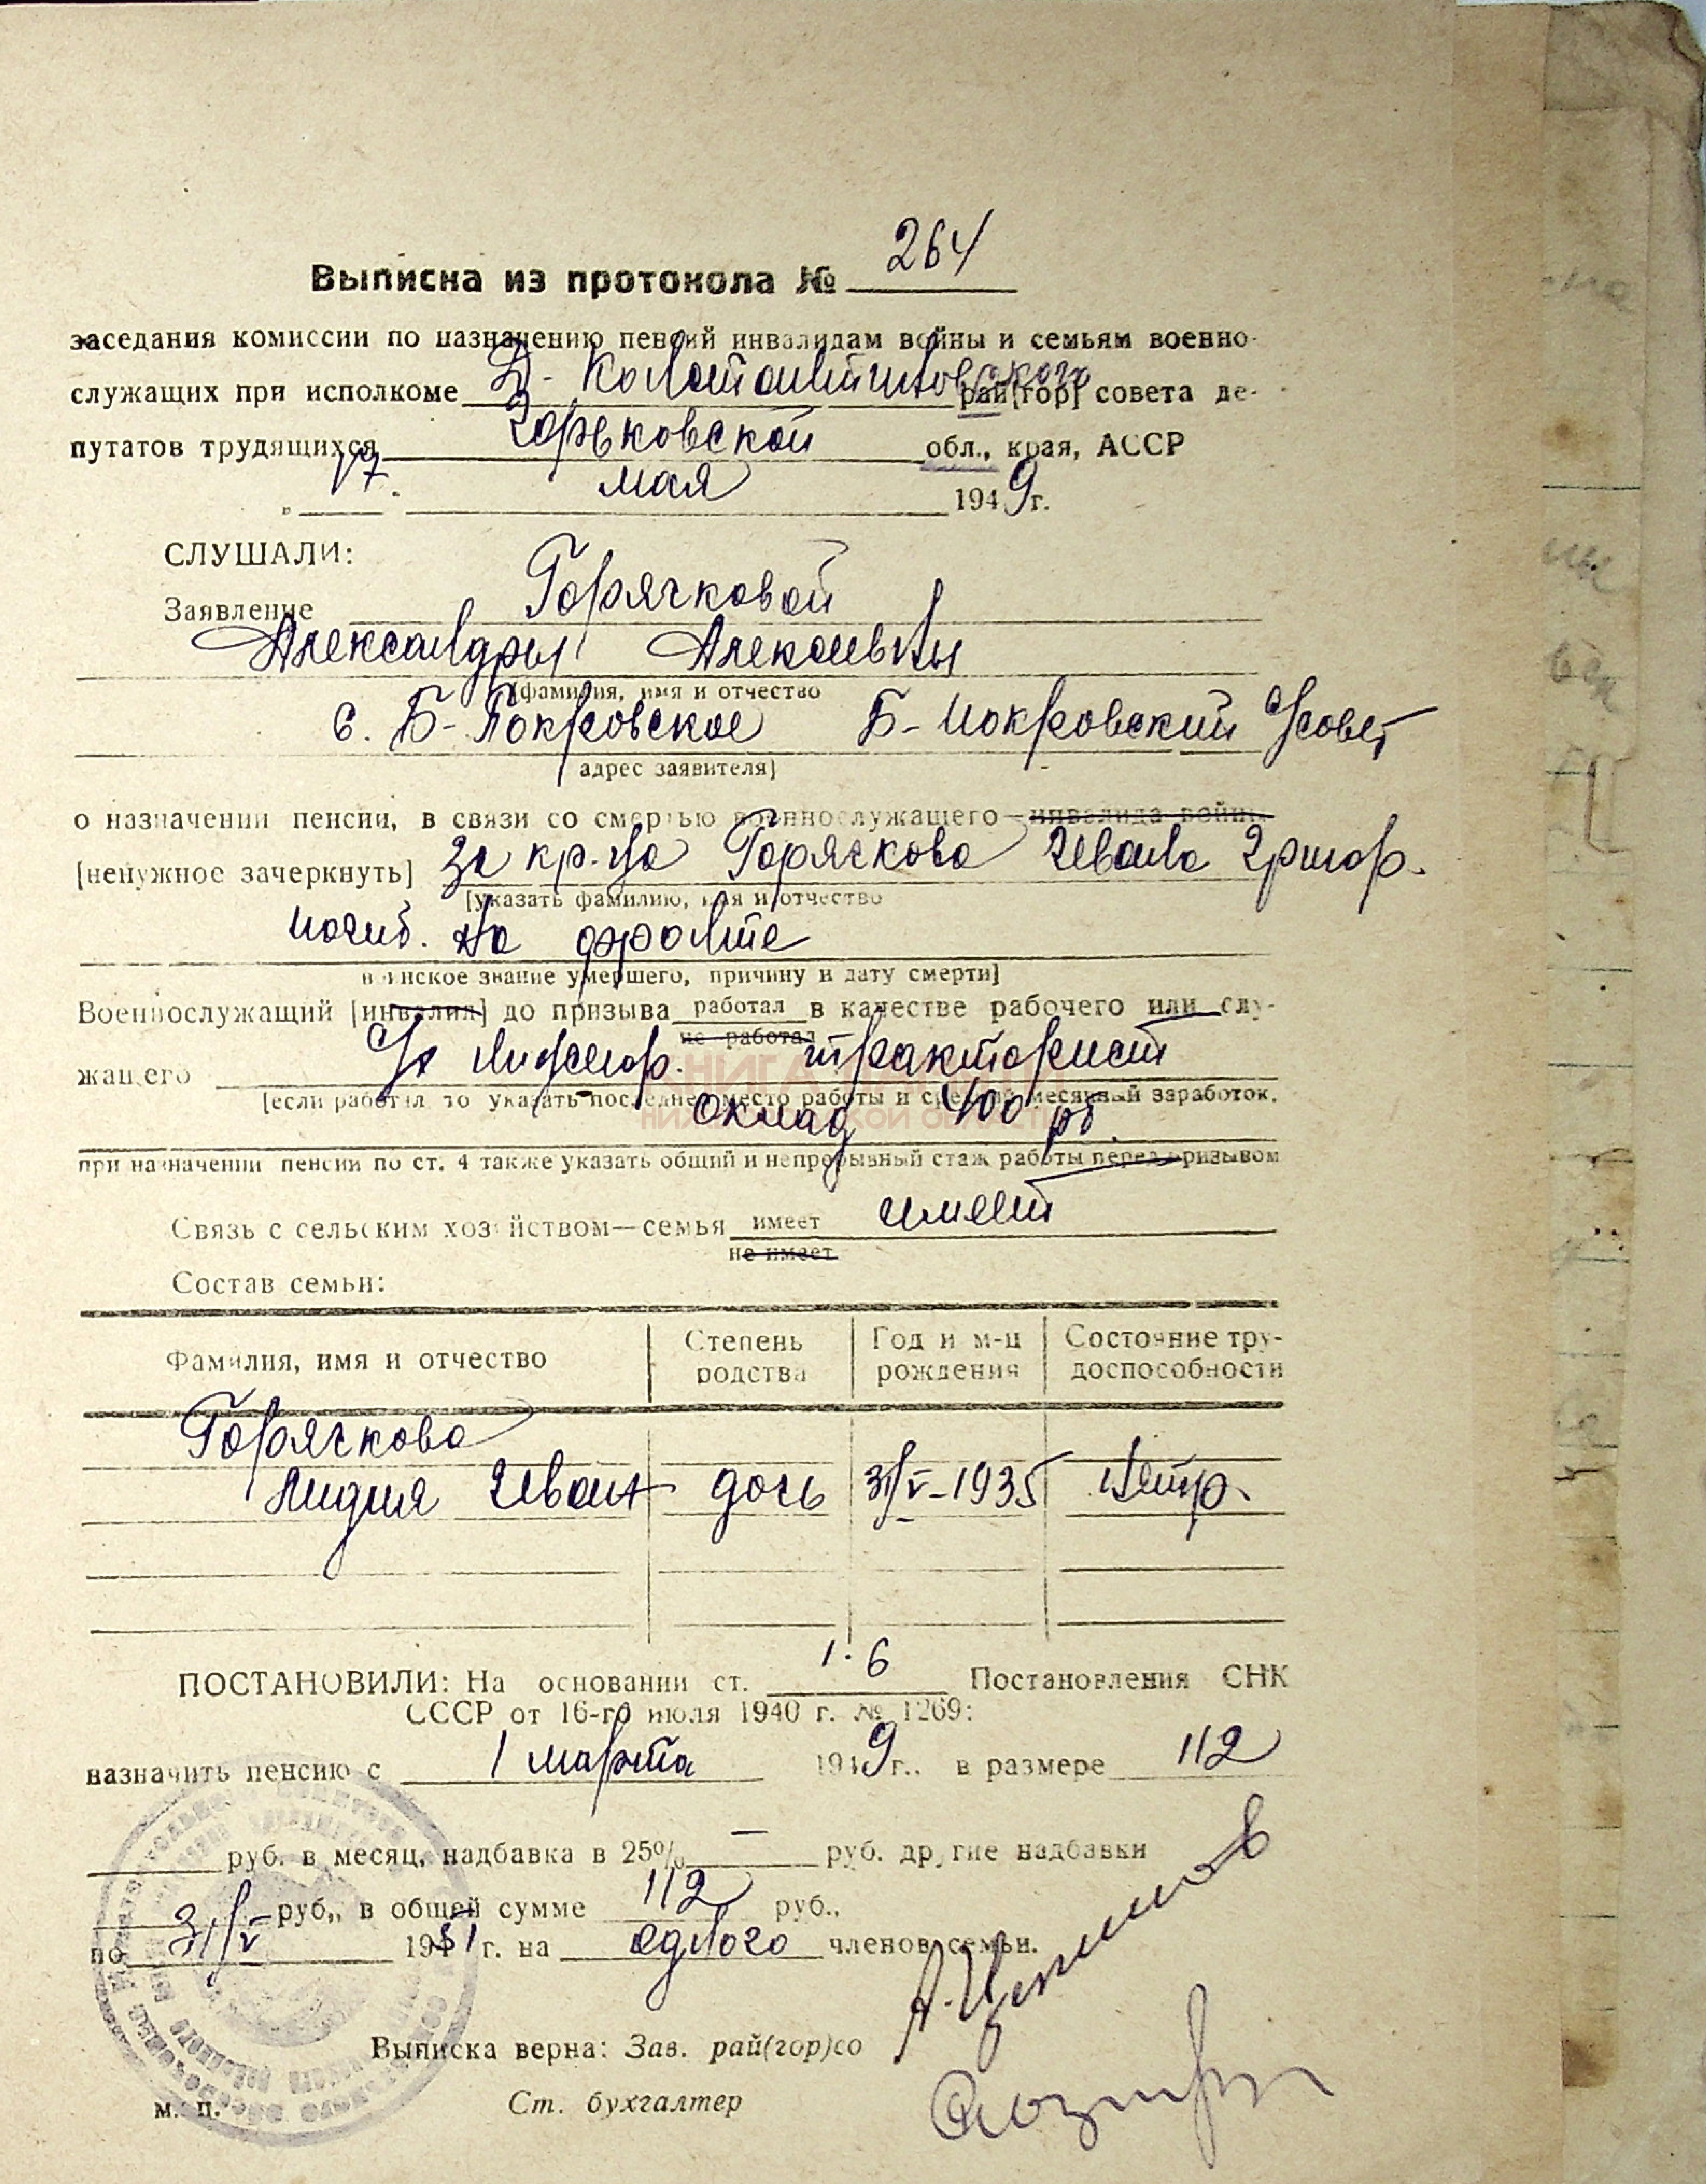 264
Выписка из протокола №
заседания комиссии по назначению пенсий инвалидам войны и семьям военно-
служащих при исполкоме Д-Константиновского рай[гор] совета де-
путатов трудящихся Горьковской обл., края, АССР
„ 17. мая 1949 г.
СЛУШАЛИ:
Заявление Горячковой
Александры Алексеевны
[фамилия, имя и отчество
с. Б-Покровское Б-Покровский с/совет
адрес заявителя]
о назначении пенсии, в связи со смертью военнослужащего—инвалида войны
[ненужное зачеркнуть] за кр-ца Горячкова Ивана Григор.
[указать фамилию, имя и отчество
погиб. на фронте
воинское звание умершего, причину и дату смерти]
Военнослужащий [инвалид] до призыва работал в качестве рабочего или слу-
не работал
жащего тракторист
[если работал то указать последнее место работы и средний месячный заработок.
оклад 400 рб
при назначении пенсии по ст. 4 также указать общий и непрерывный стаж работы перед призывом
Связь с сельским хозяйством—семья имеет имеет
не имеет
Состав семьи:
Фамилия, имя и отчество Степень родства Год и м-ц рождения Состояние тру-доспособности
Горячкова
Лидия Иван дочь 31/V-1935 нетр.
ПОСТАНОВИЛИ: На основании ст. 1·6 Постановления СНК
СССР от 16-го июля 1940 г. № 1269:
назначить пенсию с 1 марта 1949 г., в размере 112
руб. в месяц, надбавка в 25% — руб. другие надбавки
руб., в общей сумме 112 руб.,
по 31/V 1951 г. на одного членов семьи.
Выписка верна: Зав. рай(гор)со
м. п. Ст. бухгалтер